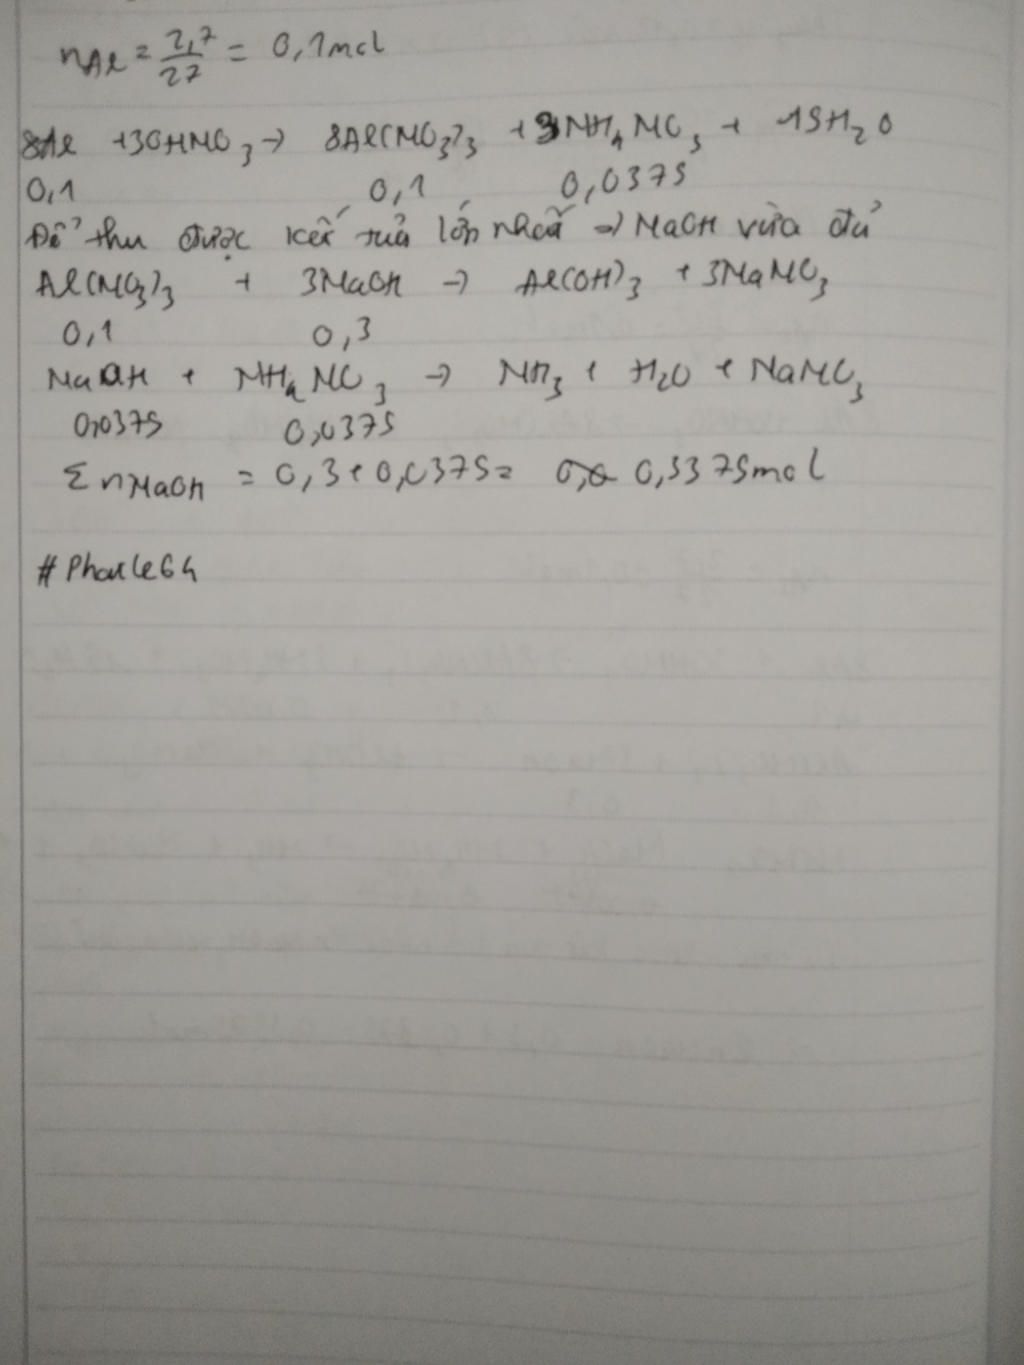 nAl = 2,7/27 = 0,1mol
8Al + 30HNO3 → 8Al(NO3)3 + 3NH4NO3 + 15H2O
0,1 0,1 0,0375
Để thu được kết tủa lớn nhất → NaOH vừa đủ
Al(NO3)3 + 3NaOH → Al(OH)3 + 3NaNO3
0,1 0,3
NaOH + NH4NO3 → NH3 + H2O + NaNO3
0,0375 0,0375
Σ nNaOH = 0,3 + 0,0375 = 0,3375mol